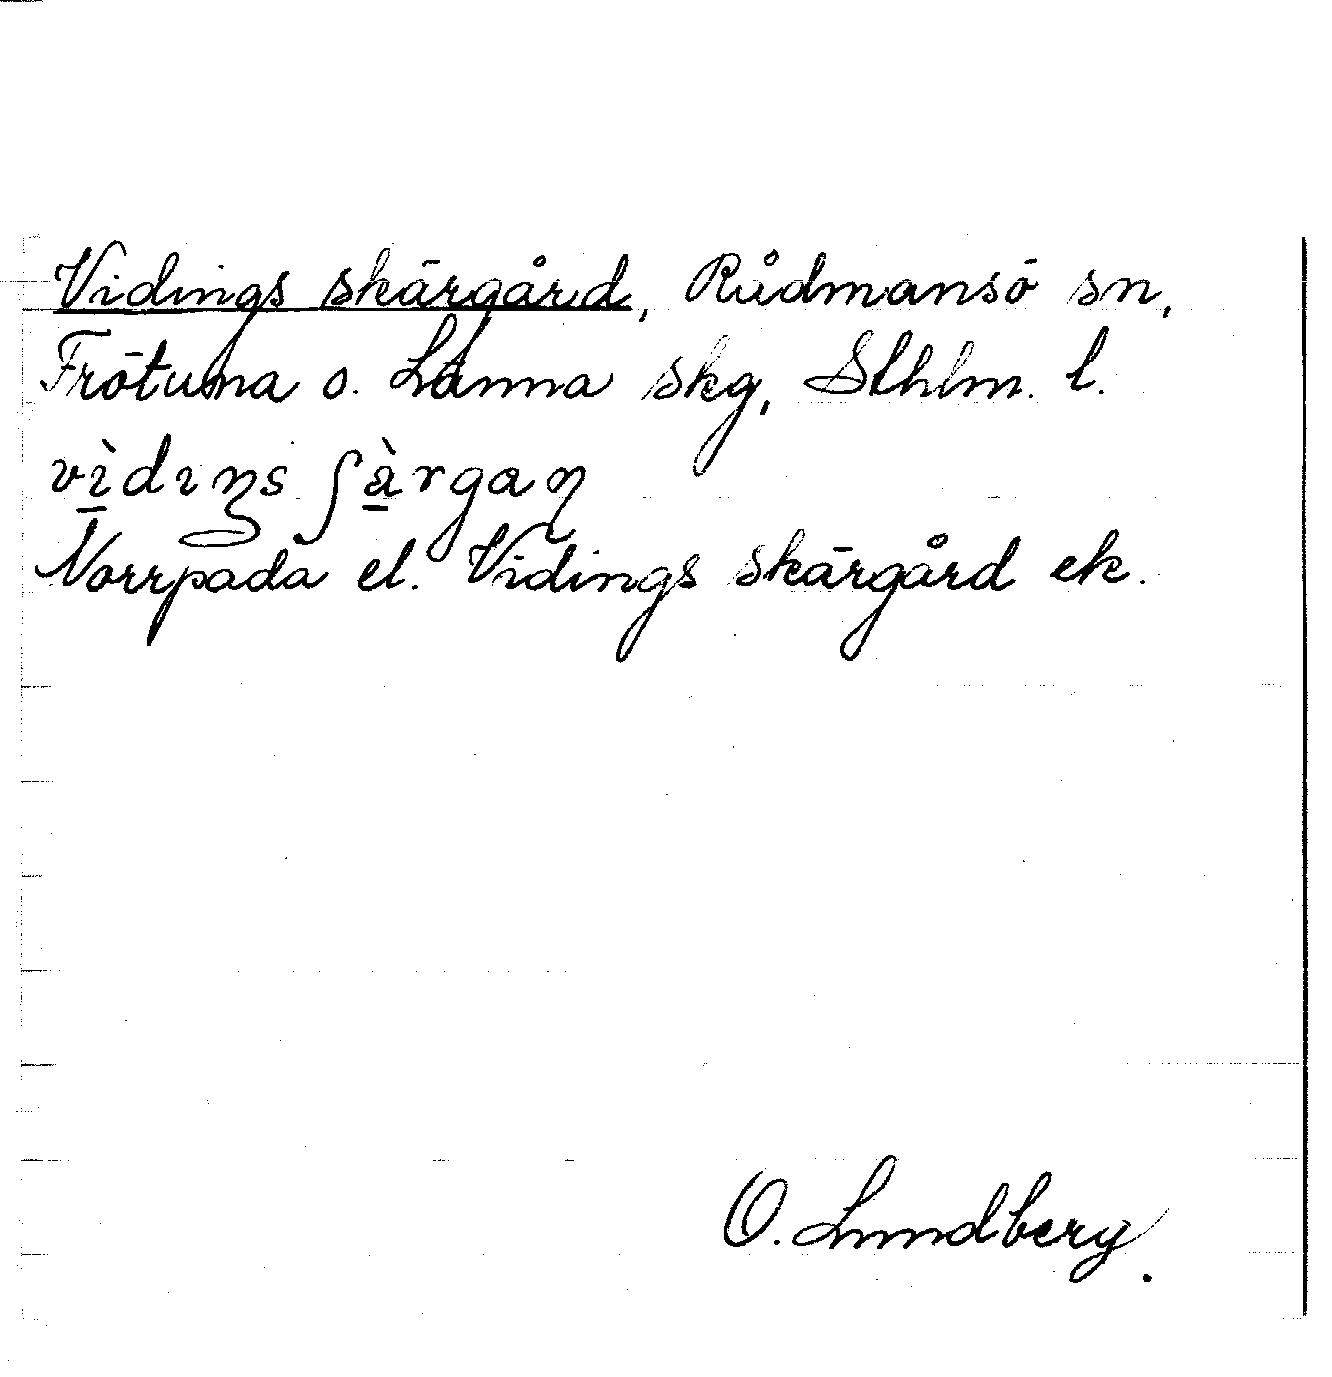 Vidings skärgård, Rådmansö sn,
Frötuna o. Länna skg, Sthlm. l.
vìdıŋs ʃàrgaɳ
Norrpada el. Vidings skärgård ek.
O. Lundberg.